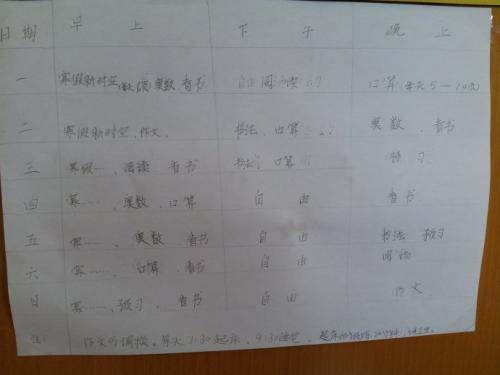 日期 早上 下午 晚上
一 寒假新时空(数、语)、奥数、看书 自由阅读 口算(每天5—10页)
二 寒假新时空、作文、 书法、口算 奥数、看书
三 寒假…、阅读 看书 书法 口算 预习
四 寒……、奥数、口算 自由 看书
五 寒……、奥数 看书 自由 书法 预习
六 寒……、口算、看书 自由 阅读
日 寒……、预习、看书 自由 作文
注: 作文可调换。每天7:30起床,9:30睡觉,